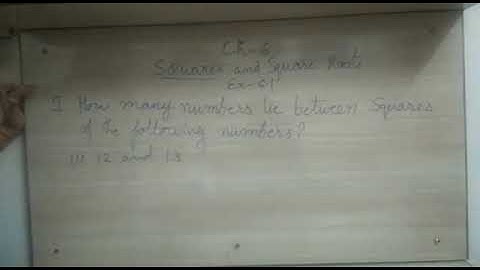 Ch-6
Squares and Square Roots
Ex-6.1
I How many numbers lie between Squares
of the following numbers?
(i) 12 and 13